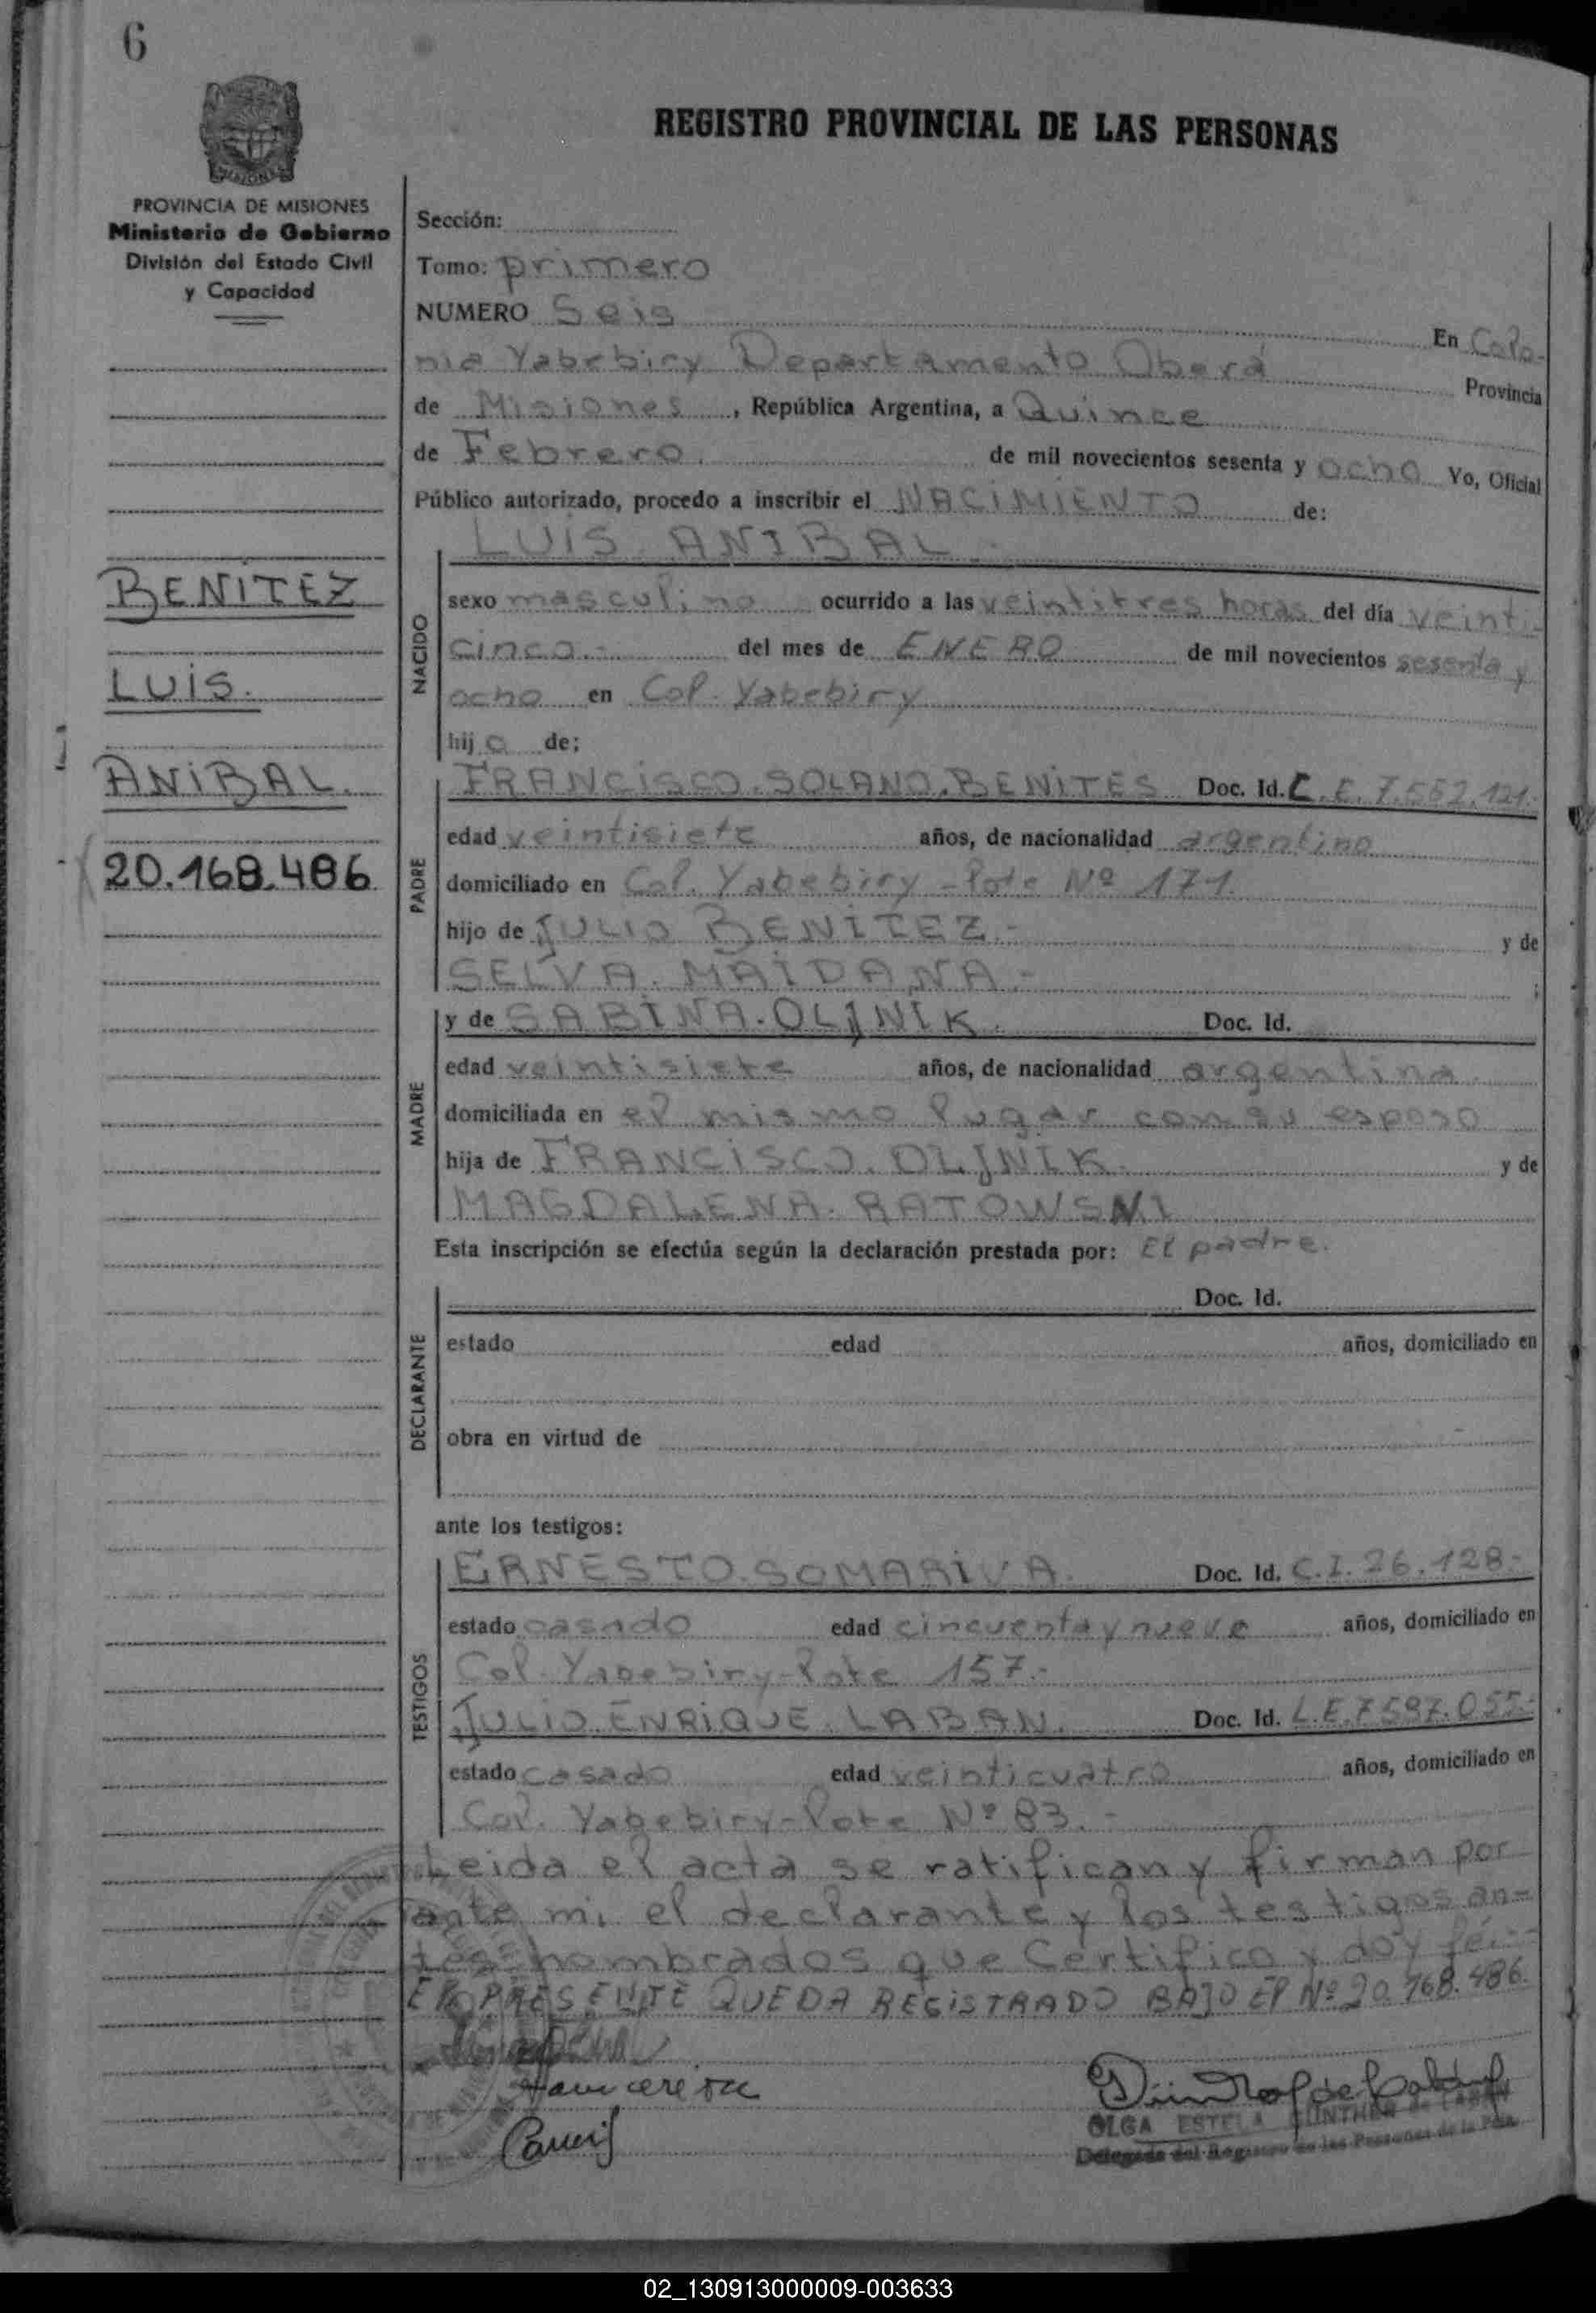 6
REGISTRO PROVINCIAL DE LAS PERSONAS
PROVINCIA DE MISIONES
Ministerio de Gobierno
División del Estado Civil
y Capacidad
Sección:
Tomo: primero
NUMERO Seis
En Colo-
nia Yabebiry Departamento Oberá Provincia
de Misiones, República Argentina, a Quince
de Febrero. de mil novecientos sesenta y ocho Yo, Oficial
Público autorizado, procedo a inscribir el NACIMIENTO de:
LUIS. ANIBAL.-
BENITEZ
LUIS.
ANIBAL.
20.168.486
NACIDO
sexo masculino ocurrido a las veintitres horas del día veinti-
cinco.- del mes de ENERO de mil novecientos sesenta y
ocho en Col. Yabebiry
hijo de;
PADRE
FRANCISCO.SOLANO.BENITES Doc. Id. L.E. 7.552.121.
edad veintisiete años, de nacionalidad argentino
domiciliado en Col. Yabebiry - lote Nº 171.
hijo de JULIO BENITEZ.- y de
SELVA. MAIDANA.- ;
MADRE
y de SABINA.OLJNIK. Doc. Id.
edad veintisiete años, de nacionalidad argentina
domiciliada en el mismo lugar con su esposo
hija de FRANCISCO.OLJNIK. y de
MAGDALENA. RATOWSKI
Esta inscripción se efectúa según la declaración prestada por: El padre.
DECLARANTE
Doc. Id.
estado edad años, domiciliado en
obra en virtud de
ante los testigos:
TESTIGOS
ERNESTO.SOMARIVA. Doc. Id. C.I. 26.128.-
estado casado edad cincuenta y nueve años, domiciliado en
Col. Yabebiry-lote 157.-
JULIO.ENRIQUE.LABAN. Doc. Id. L.E.7597.055.-
estado casado edad veinticuatro años, domiciliado en
Col. Yabebiry-lote Nº 83.-
Leida el acta se ratifican y firman por
ante mi el declarante y los testigos an-
tes nombrados que Certifico y doy fé.-
EL PRESENTE QUEDA REGISTRADO BAJO EL Nº 20.168.486.
OLGA ESTELA GUNTHER de LABAN
Delegada del Registro de las Personas de la Pcia.
02_130913000009-003633